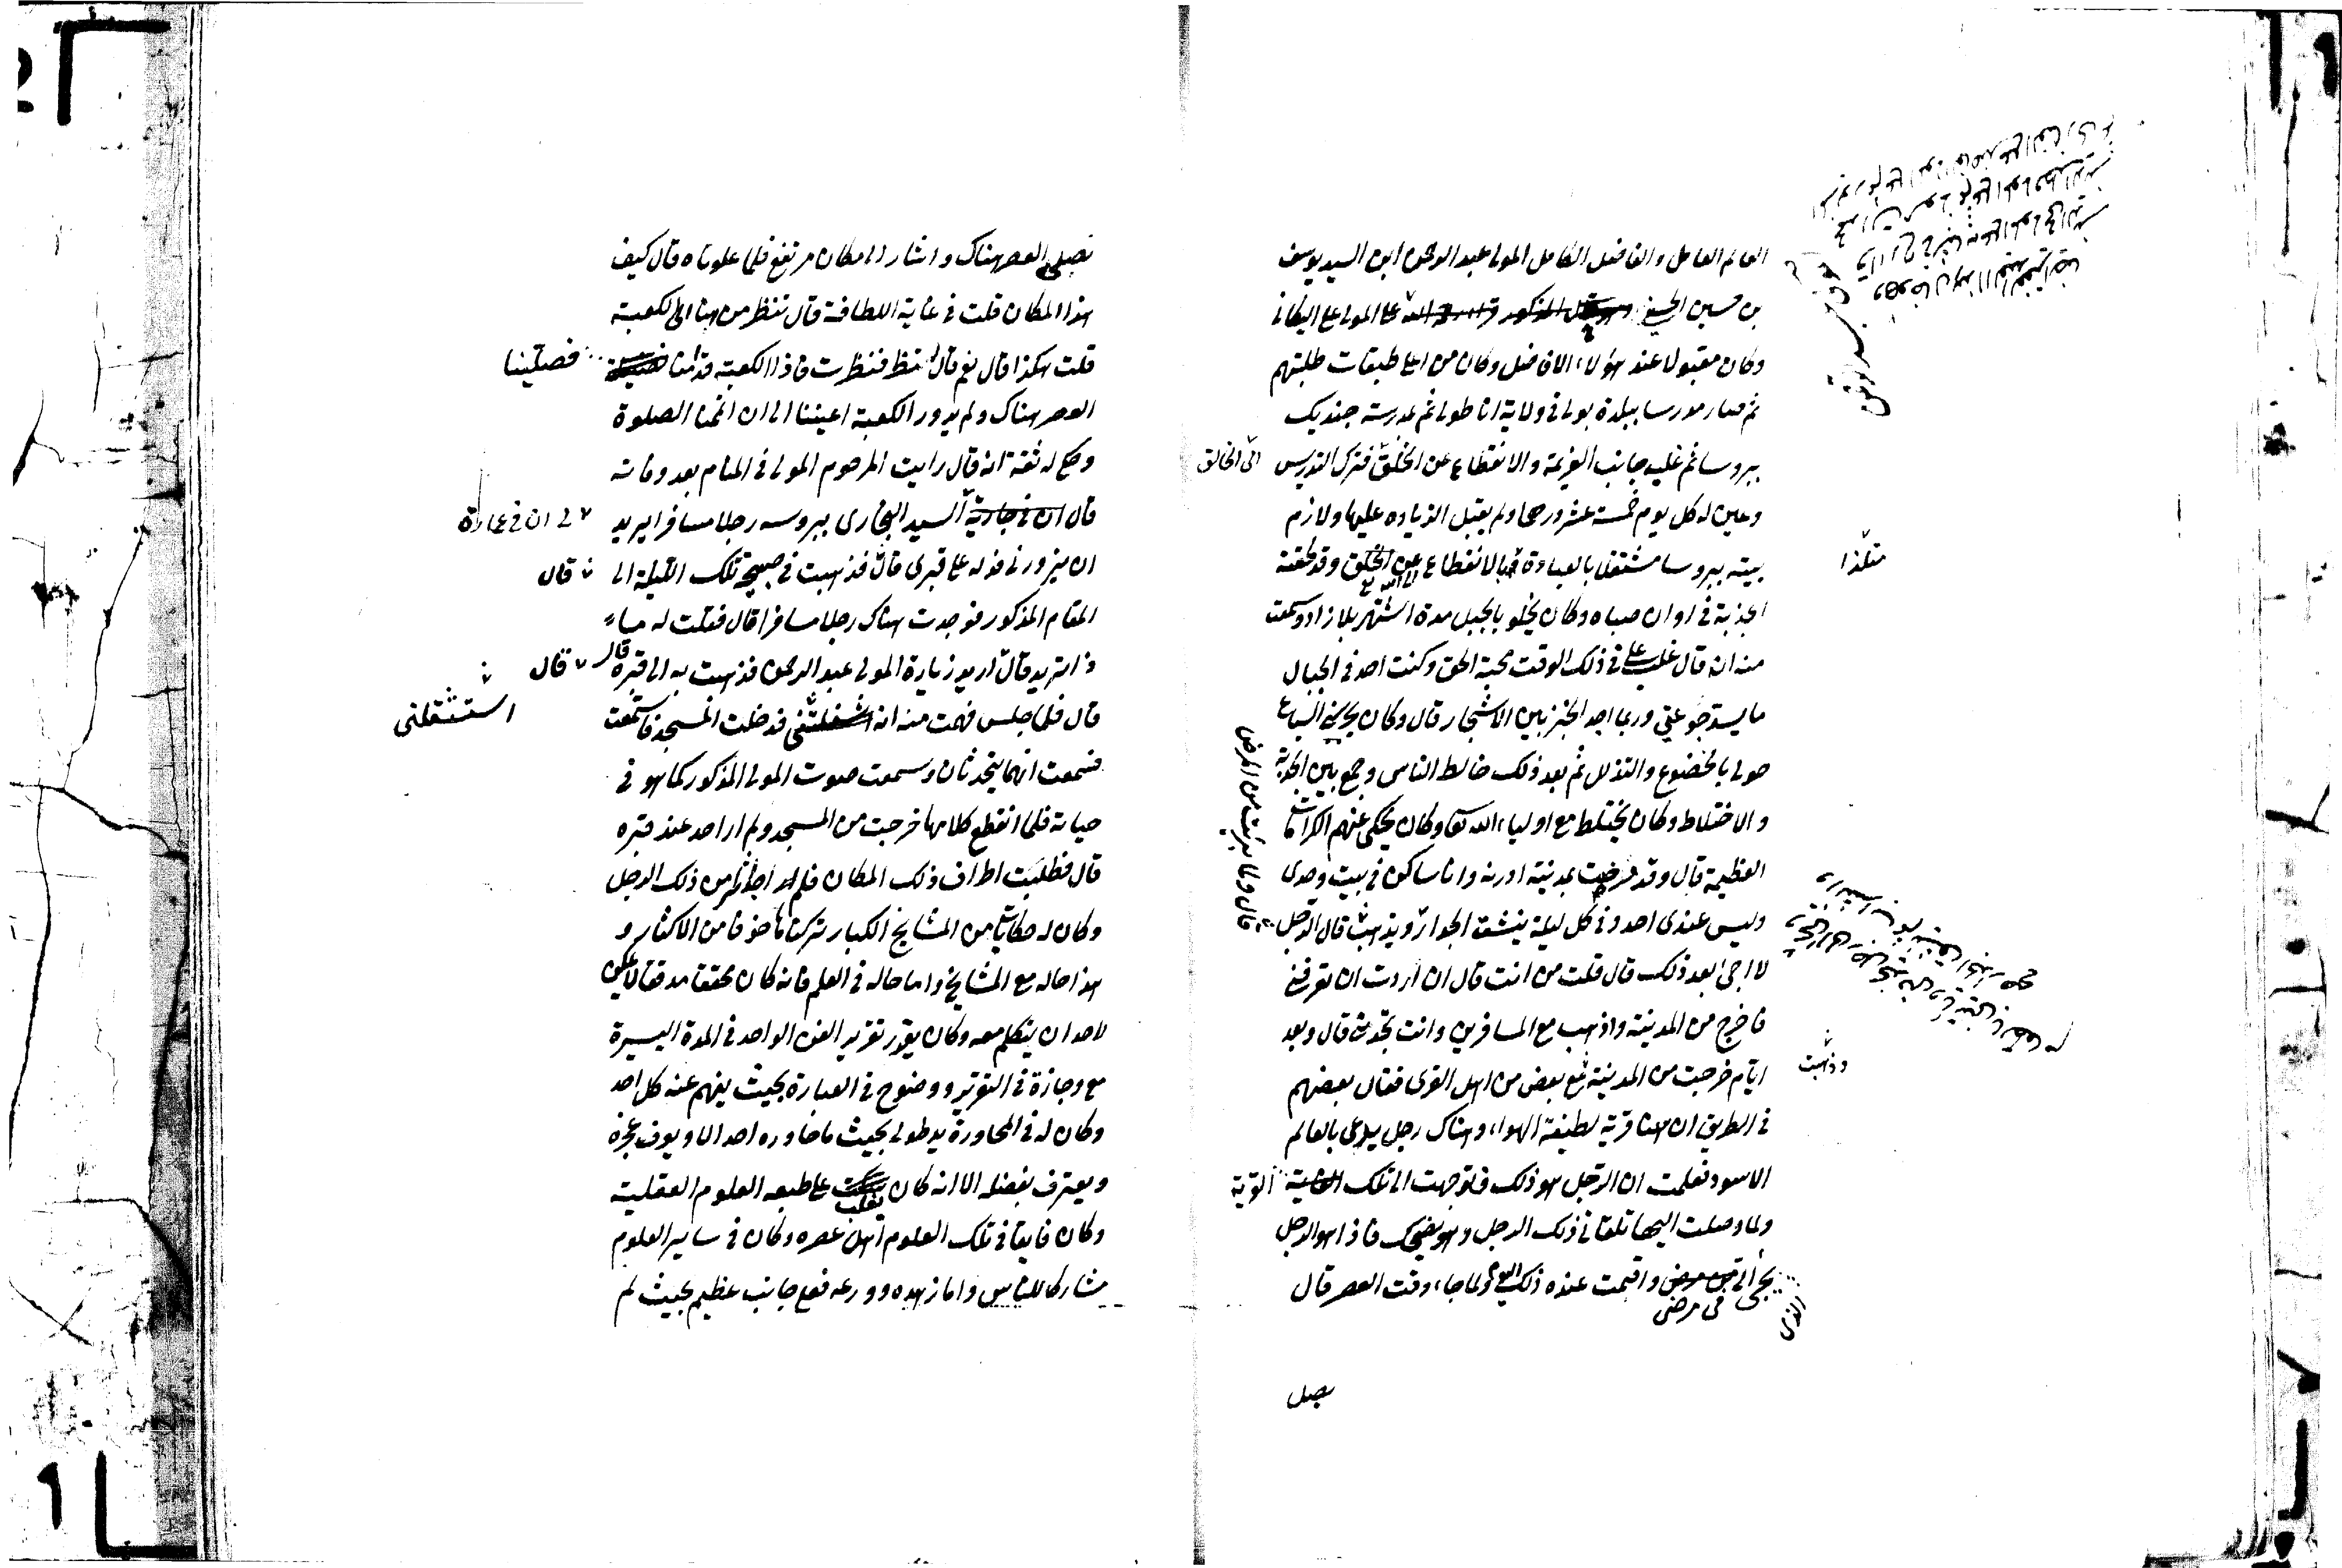 العالم العامل والفاضل الكامل المولى عبد الرحمن ابن السيد يوسف
بن حسين الحسيني المولى على اليكانى
وكان مقبولا عند هؤلاء الافاضل وكان من اعلى طبقات طلبتهم
ثم صار مدرسا ببلدة بولى فى ولاية اناطولى ثم بمدرسة جنديك
ببروسا ثم غلب جانب العزيمة والانقطاع عن الخلق فترك التدريس
الى الخالق
وعين له كل يوم خمسة عشر درهما ولم يقبل الزياده عليها ولازم
بيته ببروسا مشتغلا بالعبادة بالانقطاع عن الخلق وقد لحقته
متلذذا
الجذبة فى اوان صباه وكان يخلو بالجبل مدة اشتهر بلا زاد وسمعت
منه انه قال غلب على فى ذلك الوقت محبة الحق وكنت اجد فى الجبال
ما يسد جوعتى وربما اجد الخبز بين الاشجار قال وكان يجئ السباع
حولى بالخضوع والتذلل ثم بعد ذلك خالط الناس وجمع بين الجذبة
والاختلاط وكان يختلط مع اولياء الله تعا وكان يحكى عنهم الكرامات
العظيمة قال وقد مرضت بمدينة ادرنه وانا ساكن فى بيت وحدى
وليس عندى احد وفى كل ليلة ينشق الجدار ويذهب قال الرجل
قال ولما برئت من المرض
لا اجئ بعد ذلك قال قلت من انت قال ان اردت ان تعرفنى
فاخرج من المدينة واذهب مع المسافرين وانت تجدنى قال وبعد
ايام خرجت من المدينة مع بعض من اهل القرى فقال بعضهم
وذهبت
فى الطريق ان هنا قرية لطيفة الهواء وهناك رجل يدعى بالعالم
الاسود فعلمت ان الرجل هو ذلك فتوجهت الى تلك القرية
ولما وصلت اليها تلقانى ذلك الرجل وهو يضحك فاذا هو الرجل
الذى
يجئ الى فى مرضى واقمت عنده ذلك اليوم ولما جاء وقت العصر قال
نصلى
نصلى العصر هناك واشار الى مكان مرتفع فلما علوناه قال كيف
هذا المكان قلت فى غاية اللطافة قال تنظر من هنا الى الكعبة
قلت هكذا قال نعم قال انظر فنظرت فاذا الكعبة قدامنا
فصلينا
العصر هناك ولم يدور الكعبة اعيننا الى ان اتممنا الصلوة
وحكى له ثقة انه قال رايت المرحوم المولى فى المنام بعد وفاته
قال السيد البخارى ببروسه رجلا مسافرا يريد
ان يزورنى فدله على قبرى قال فذهبت فى صبيحة تلك الليلة الى
قال
المقام المذكور فوجدت هناك رجلا مسافرا قال فقلت له
ذا تريد قال اريد زيارة المولى عبد الرحمن فذهبت به الى قبره قال
قال
قال فلما جلس فهمت منه انه فدخلت المسجد فاستمعت
استثقلنى
فسمعت انهما يتحدثان وسمعت صوت المولى المذكور كما هو فى
حياته فلما انقطع كلامهما خرجت من المسجد ولم ار احد عند قبره
قال فطلبت اطراف ذلك المكان فلم اجد اثرا من ذلك الرجل
وكان له حكايات من المشايخ الكبار تركناها خوفا من الاكثار و
هذا حاله مع المشايخ واما حاله فى العلم فانه كان محققا مدققا لا يمكن
لاحد ان يتكلم معه وكان يقرر تقرير الفن الواحد فى المدة اليسيرة
مع وجازة فى التقرير ووضوح فى العبارة بحيث يفهم عنه كل احد
وكان له فى المحاورة يد طولى بحيث ما حاوره احد الا ويعرف عجزه
ويعترف بفضله الا انه كان تغلب على طبعه العلوم العقلية
وكان فايقا فى تلك العلوم اهل عصره وكان فى ساير العلوم
مشاركا للناس واما زهده وورعه فعلى جانب عظيم بحيث لم